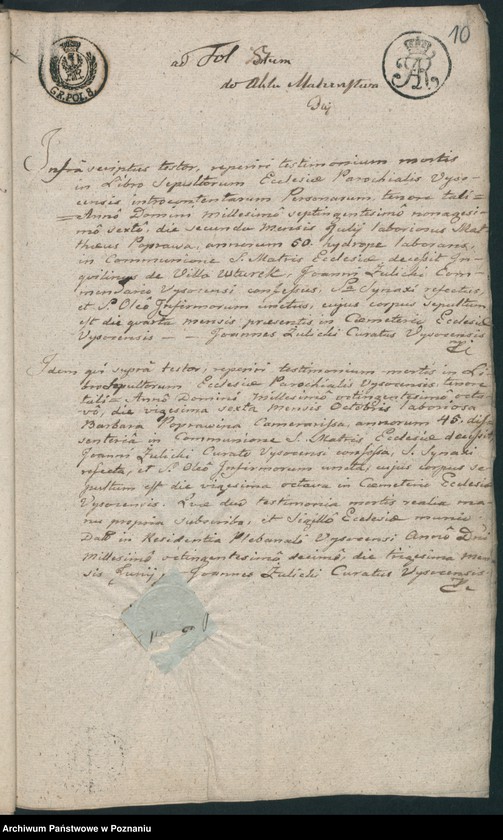 10
GR. POL. 8.
ad Fol
do Aktu Małżeństwa
Infra scriptus testor, reperiri testimonium mortis
in Libro Sepultorum Ecclesiæ Parochialis Vyso-
censis, introcontentarum Personarum, tenore tali =
= Annô Domini Millesimô Septingentesimô nonagesi-
mô sextô, die secunda mensis Julij laboriosus Mat-
theus Poprawa, annorum 60. hydrope laborans,
in Communione S. Matris Ecclesiæ decessit In-
quilinus de Villa Wturek, Joanni Zulicki Com-
mendario Vysocensi confessus, Sæ Synaxi refectus,
et S. Oleô Infirmorum unctus, cujus corpus sepultum
est die quarta mensis præsentis in Cæmeterio Ecclesiæ
Vysocensis — — Joannes Zulicki Curatus Vysocensis
Idem qui suprà testor, reperiri testimonium mortis in Li-
bro Sepultorum Ecclesiæ Parochialis Vysocensis, tenore
tali Annô Dominô Millesimô octingentesimô octa-
vô, die vigesima sexta mensis Octobris laboriosa
Barbara Poprawina Camerarissa, annorum 45. diſſ
senteria in Communione S. Matris Ecclesiæ decessit
Joanni Zulicki Curato Vysocensi confessa, S. Synaxi
refecta, et S. Oleô Infirmorum uncta, cujus corpus se-
pultum est die vigesima octava in Cæmeterio Ecclesiæ
Vysocensis. Quæ duo testimonia mortis realia ma-
nu propria subscribo, et Sigillô Ecclesiæ munio
Dab in Residentia Plebanali Vysocensi Annô Dnô
Millesimô octingentesimô decimô, die trigesima men-
sis Junij, — Joannes Zulicki Curatus Vysocensis
Archiwum Państwowe w Poznaniu